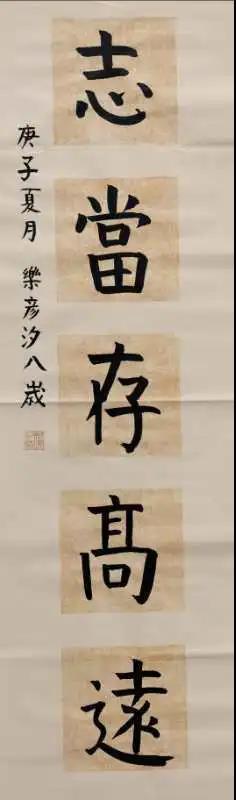 志當存髙遠
庚子夏月 樂彦汐八歲